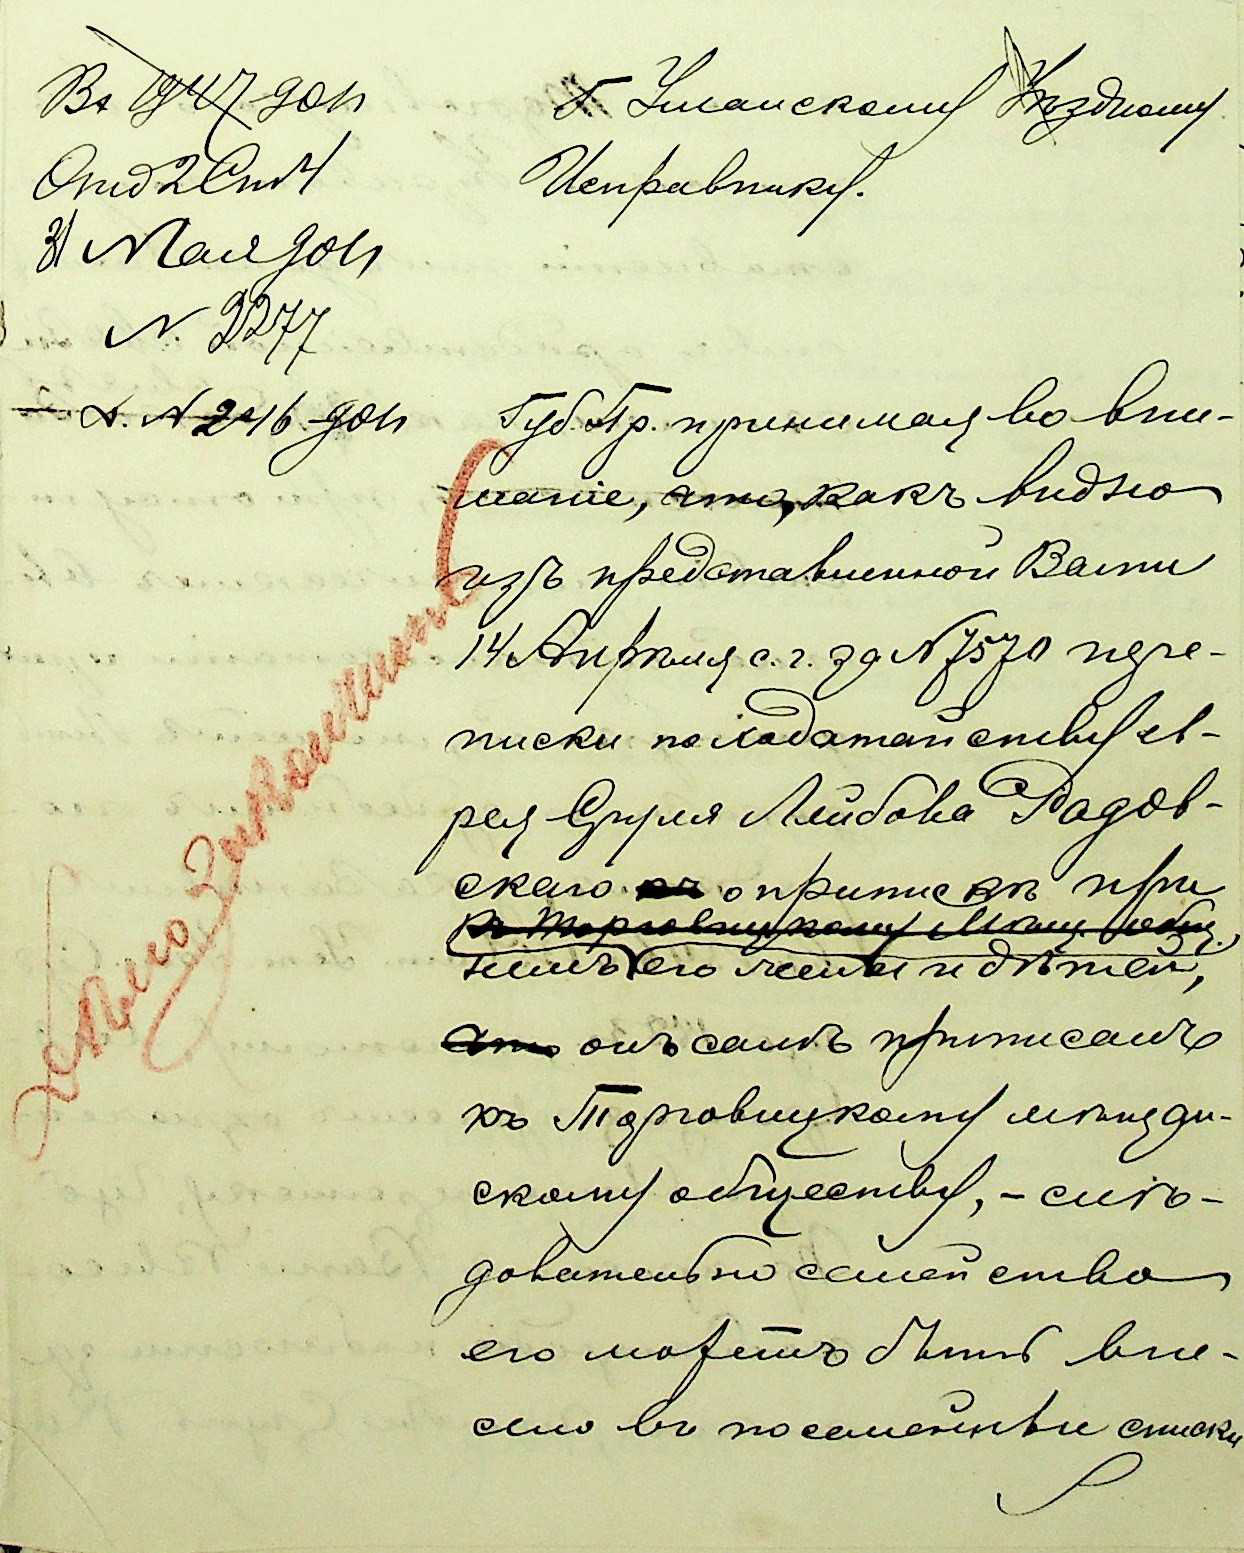 Вх 1947 901
Отд 2 Ст 4
31 Мая 901
N. 2277
Д. N 246 901
Г. Уманскому Уѣздному
Исправнику.
Губ. Пр. принимая во вни-
маніе, что, какъ видно
изъ представленной Вами
14 Апрѣля с. г. за N 7570 пере-
писки по ходатайству ев-
рея Сруля Лейбова Радов-
скаго о припискѣ при
къ Торговицкому Мѣщ. общ.
немъ его жены и дѣтей,
что онъ самъ приписанъ
къ Торговицкому мѣщан-
скому обществу, - слѣ-
довательно семейство
его можетъ быть вне-
сено въ посемейные списки